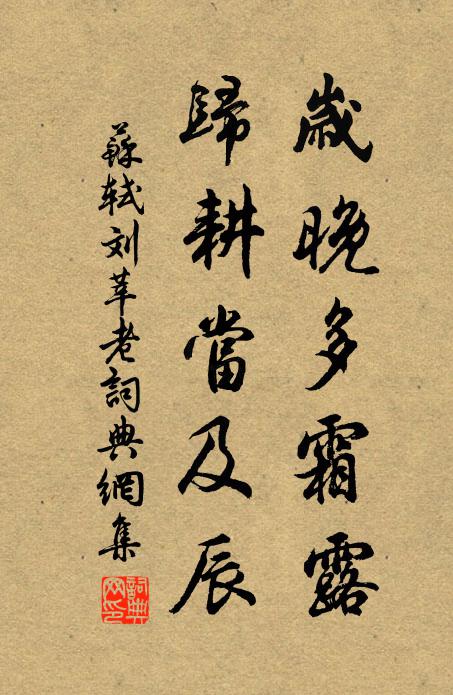 歲晚多霜露
歸耕當及辰
蘇軾刘莘老詞典網集
詞典网印